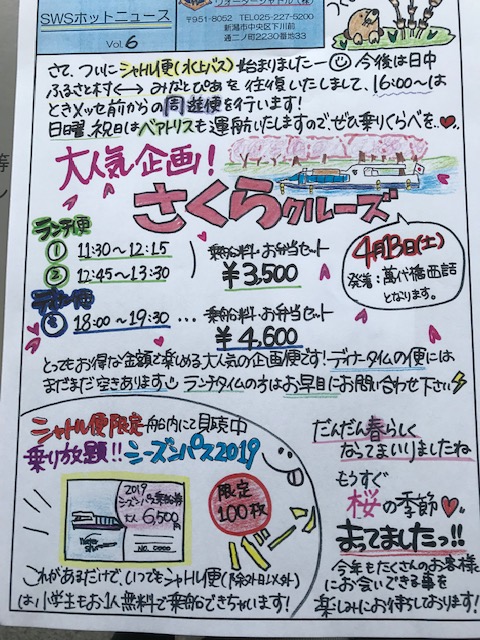 SWSホットニュース
Vol.6
ウォーターシャトル(株)
〒951-8052 TEL025-227-5200
新潟市中央区下川前
通二ノ町2230番地33
さて、ついにシャトル便(水上バス)始まりましたー 今後は日中
ふるさと村⟷みなとぴあを往復いたしまして、16:00〜は
ときメッセ前からの周遊便を行います!
日曜、祝日はベアトリスも運航いたしますので、ぜひ乗りくらべを...
大人気企画!
さくらクルーズ
ランチ便
① 11:30〜12:15
② 12:45〜13:30
乗船料・お弁当セット
¥3,500
ディナー便
③ 18:00〜19:30 ... 乗船料・お弁当セット
¥4,600
4月13日(土)
発着:萬代橋西詰
となります。
とってもお得な金額で楽しめる大人気の企画便です!ディナータイムの便には
まだまだ空きあります ランチタイムの方はお早目にお問い合わせ下さい
シャトル便限定 船内にて販売中
乗り放題!!シーズンパス2019
2019
シーズンパス乗船券
大人 6,500円
NO. 0000
限定
100枚
これがあるだけで、いつでもシャトル便(除外日以外)
は小学生もお1人無料で乗船できちゃいます!
だんだん春らしく
なってまいりましたね
もうすぐ
桜の季節
まってましたっ!!
今年もたくさんのお客様
にお会いできる事を
楽しみにお待ちしております!
等